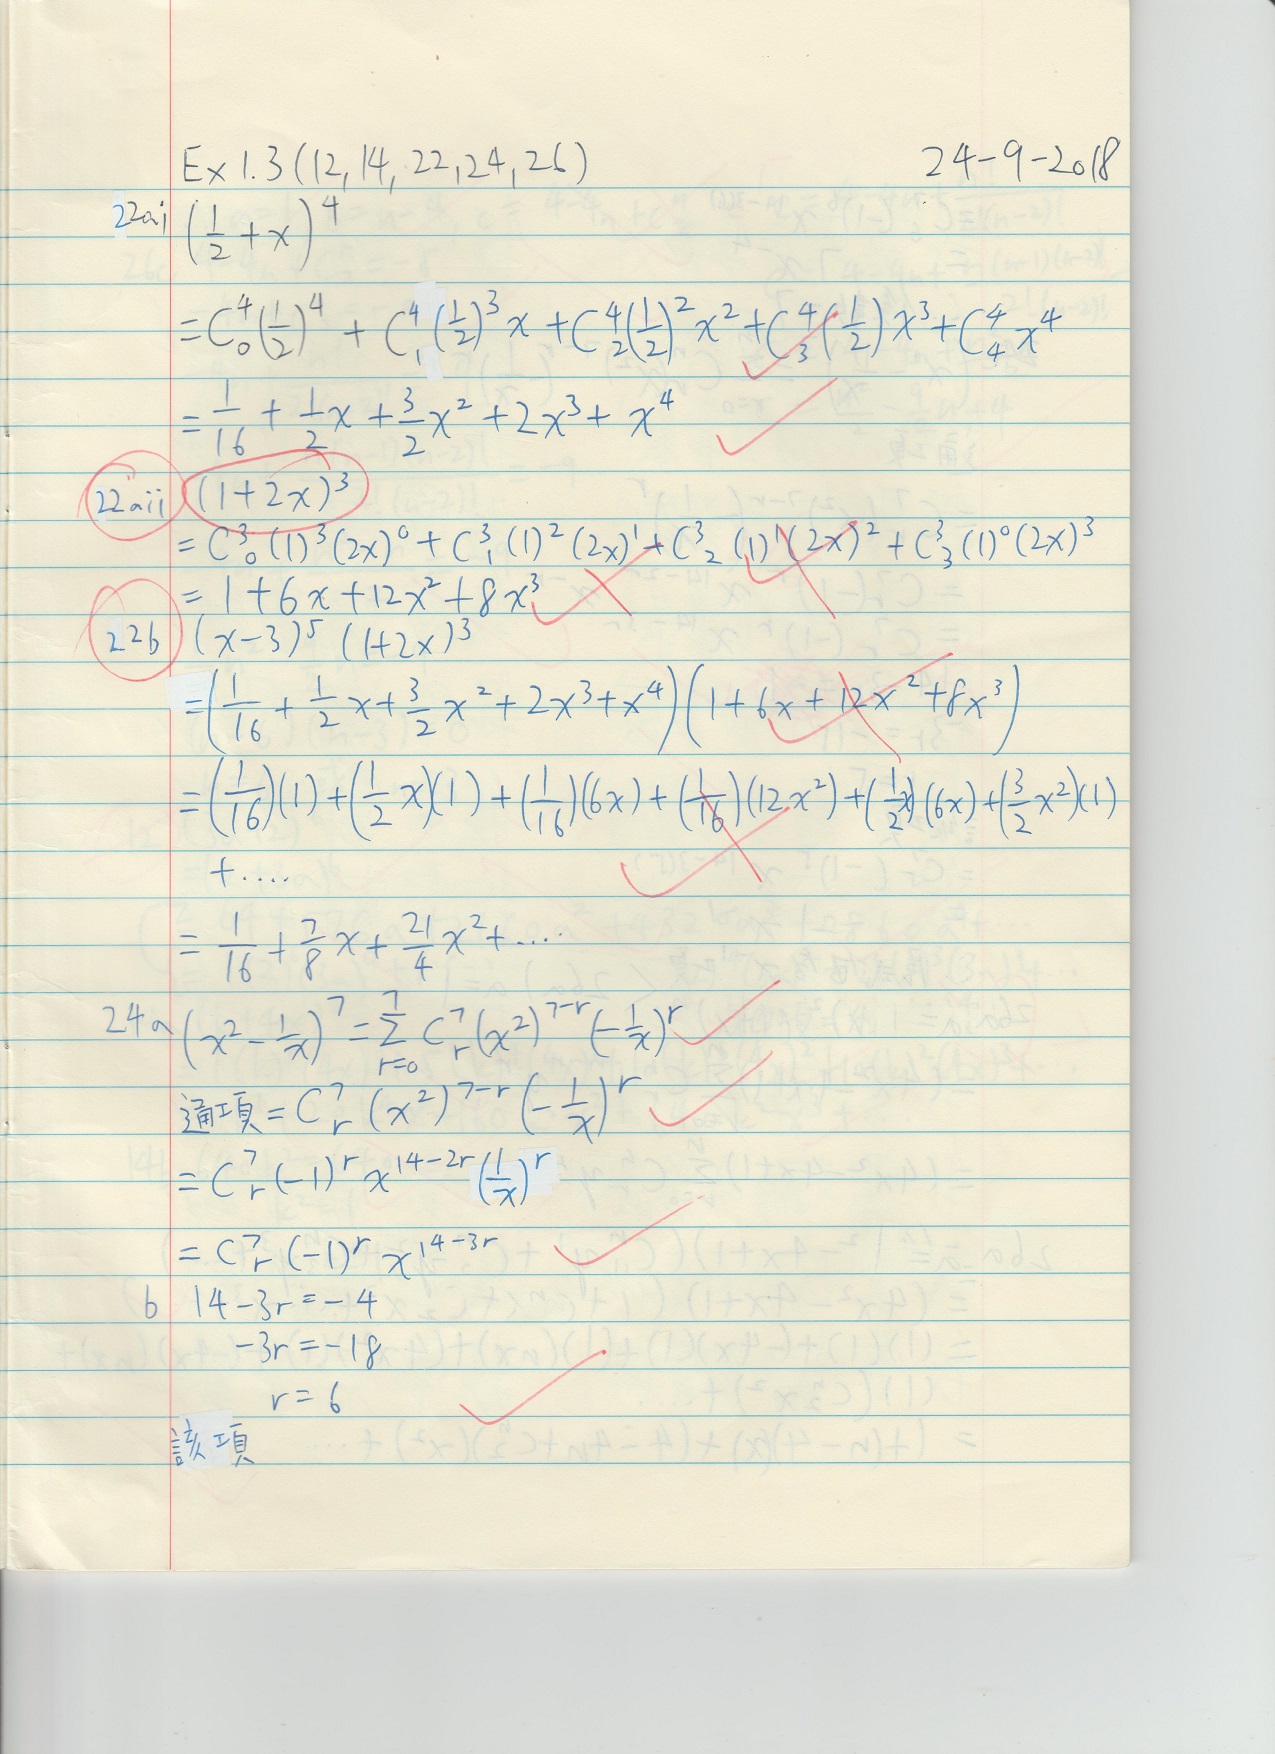 Ex 1.3 (12, 14, 22, 24, 26) 24-9-2018
22ai (1/2 + x)^4
= C^4_0 (1/2)^4 + C^4_1 (1/2)^3 x + C^4_2 (1/2)^2 x^2 + C^4_3 (1/2) x^3 + C^4_4 x^4
= 1/16 + 1/2 x + 3/2 x^2 + 2x^3 + x^4
22aii (1+2x)^3
= C^3_0 (1)^3 (2x)^0 + C^3_1 (1)^2 (2x)^1 + C^3_2 (1)^1 (2x)^2 + C^3_3 (1)^0 (2x)^3
= 1+6x+12x^2+8x^3
22b (x-3)^5 (1+2x)^3
= (1/16 + 1/2 x + 3/2 x^2 + 2x^3 + x^4)(1+6x+12x^2+8x^3)
= (1/16)(1) + (1/2 x)(1) + (1/16)(6x) + (1/16)(12x^2) + (1/2 x)(6x) + (3/2 x^2)(1)
+ ....
= 1/16 + 7/8 x + 21/4 x^2 + ....
24a (x^2 - 1/x)^7 = Σ^7_{r=0} C^7_r (x^2)^{7-r} (-1/x)^r
通項 = C^7_r (x^2)^{7-r} (-1/x)^r
= C^7_r (-1)^r x^{14-2r} (1/x)^r
= C^7_r (-1)^r x^{14-3r}
b 14-3r = -4
-3r = -18
r = 6
該項